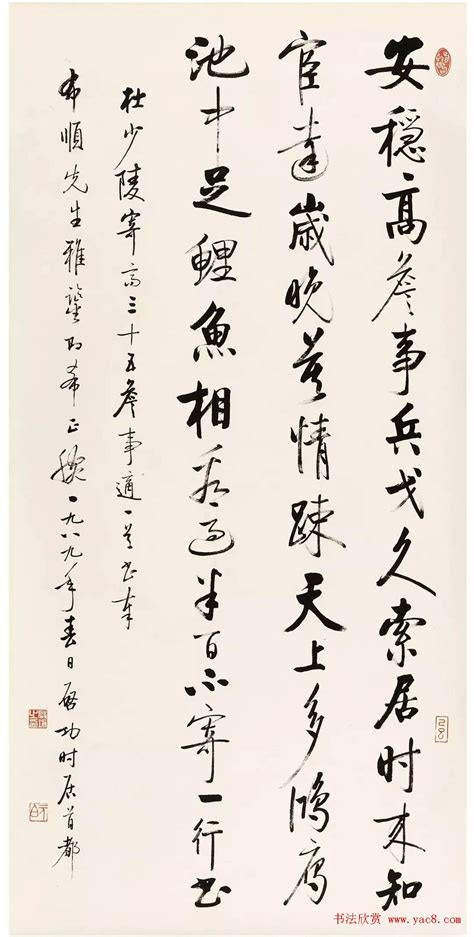 安穩高詹事兵戈久索居时来知
宦達歲晚莫情疎天上多鴻雁
池中足鯉魚相看過半百不寄一行书
杜少陵寄高三十五詹事適一首书奉
布順先生雅鑒希正腕一九八九年春日啓功时居首都
书法欣赏
www.yac8.com